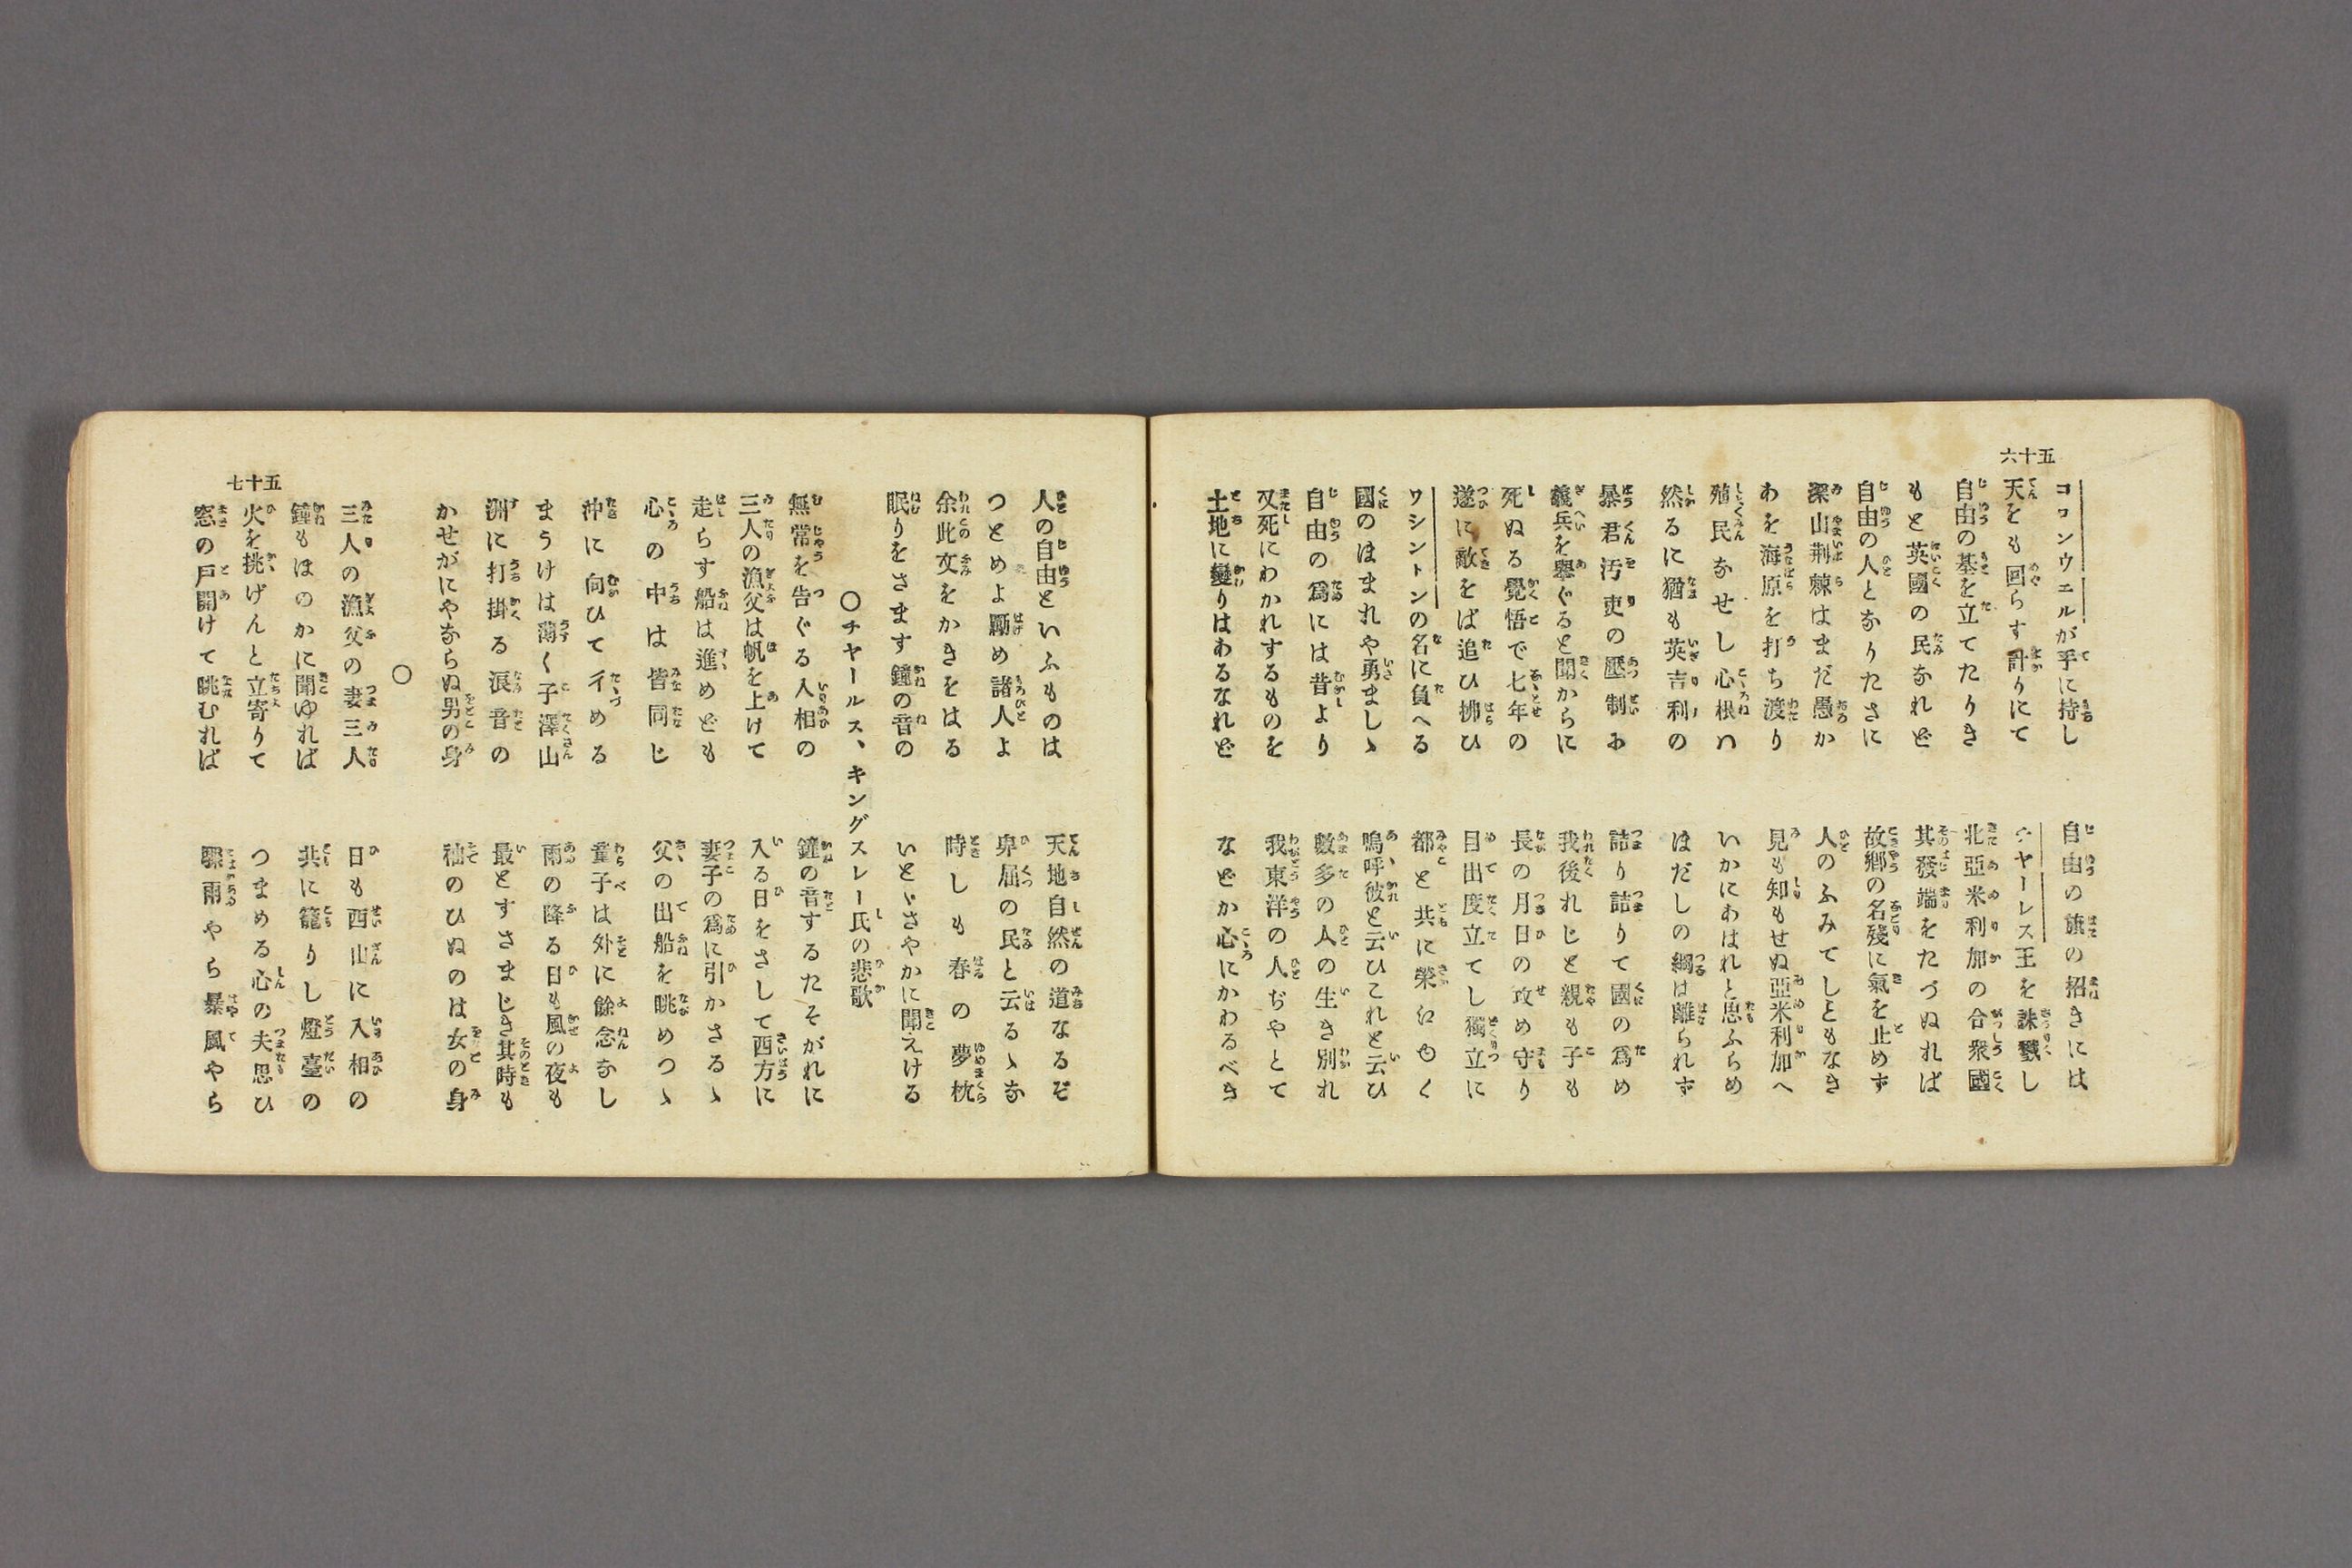 五十六
コロンウエルが手に持し　自由の旗の招きには
天をも回らす計りにて　チヤーレス王を誅戮し
自由の基を立てたりき　北亞米利加の合衆國
もと英國の民なれど　其發端をたづぬれば
自由の人となりたさに　故郷の名殘に氣を止めず
深山荆棘はまだ愚か　人のふみてしともなき
あを海原を打ち渡り　見も知もせぬ亞米利加へ
殖民なせし心根ハ　いかにあはれと思ふらめ
然るに猶も英吉利の　はだしの綱は離られず
暴君汚吏の壓制に　詰り詰りて國の爲め
義兵を擧ぐると聞からに　我後れじと親も子も
死ぬる覺悟で七年の　長の月日の攻め守り
遂に敵をば追ひ拂ひ　目出度立てし獨立に
ワシントンの名に負へる　都と共に榮ゆく
國のほまれや勇ましゝ　嗚呼彼と云ひこれと云ひ
自由の爲には昔より　數多の人の生き別れ
又死にわかれするものを　我東洋の人ぢやとて
土地に變りはあるなれど　などか心にかわるべき
人の自由といふものは　天地自然の道なるぞ
つとめよ勵め諸人よ　卑屈の民と云るゝな
余此文をかきをはる　時しも春の夢枕
眠りをさます鐘の音の　いとゞさやかに聞えける
〇チヤールス、キングスレー氏の悲歌
無常を告ぐる入相の　鐘の音するたそがれに
三人の漁父は帆を上けて　入る日をさして西方に
走らす船は進めども　妻子の爲に引かさるゝ
心の中は皆同じ　父の出船を眺めつゝ
沖に向ひて彳める　童子は外に餘念なし
まうけは薄く子澤山　雨の降る日も風の夜も
洲に打掛る浪音の　最とすさまじき其時も
かせがにやならぬ男の身　袖のひぬのは女の身
〇
三人の漁父の妻三人　日も西山に入相の
鐘もほのかに聞ゆれば　共に籠りし燈臺の
火を挑げんと立寄りて　つまめる心の夫思ひ
窓の戸開けて眺むれば　驟雨やら暴風やら
五十七